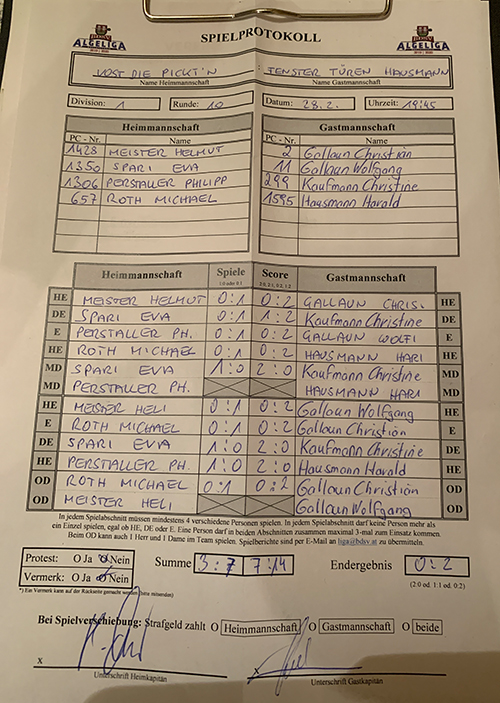 ALGELIGA SPIELPROTOKOLL ALGELIGA
VOST DIE PICKT'N : FENSTER TÜREN HAUSMANN
Name Heimmannschaft Name Gastmannschaft
Division: 1 Runde: 10 Datum: 28.2. Uhrzeit: 19:45
Heimmannschaft Gastmannschaft
PC - Nr. Name PC - Nr. Name
1428 MEISTER HELMUT 2 Gallaun Christian
1350 SPARI EVA 11 Gallaun Wolfgang
1306 PERSTALLER PHILIPP 299 Kaufmann Christine
657 ROTH MICHAEL 1595 Hausmann Harald
Heimmannschaft Spiele Score Gastmannschaft
1:0 oder 0:1 2:0, 2:1, 0:2, 1:2
HE MEISTER HELMUT 0:1 0:2 GALLAUN CHRIS. HE
DE SPARI EVA 0:1 1:2 Kaufmann Christine DE
E PERSTALLER PH. 0:1 0:2 GALLAUN WOLFI E
HE ROTH MICHAEL 0:1 0:2 HAUSMANN HARI HE
MD SPARI EVA 1:0 2:0 Kaufmann Christine MD
MD PERSTALLER PH. HAUSMANN HARI MD
HE MEISTER HELI 0:1 0:2 Gallaun Wolfgang HE
E ROTH MICHAEL 0:1 0:2 Gallaun Christian E
DE SPARI EVA 1:0 2:0 Kaufmann Christine DE
HE PERSTALLER PH. 1:0 2:0 Hausmann Harald HE
OD ROTH MICHAEL 0:1 0:2 Gallaun Christian OD
OD MEISTER HELI Gallaun Wolfgang OD
In jedem Spielabschnitt müssen mindestens 4 verschiedene Personen spielen. In jedem Spielabschnitt darf keine Person mehr als
ein Einzel spielen, egal ob HE, DE oder E. Eine Person darf in beiden Abschnitten zusammen maximal 3-mal zum Einsatz kommen.
Beim OD kann auch 1 Herr und 1 Dame im Team spielen. Spielberichte sind per E-Mail an liga@bdsv.at zu übermitteln.
Protest: O Ja O Nein Summe 3:7 7:14 Endergebnis 0:2
Vermerk: O Ja O Nein (2:0 od. 1:1 od. 0:2)
*) Ein Vermerk kann auf der Rückseite gemacht werden (bitte mitsenden)
Bei Spielverschiebung: Strafgeld zahlt O Heimmannschaft O Gastmannschaft O beide
x x
Unterschrift Heimkapitän Unterschrift Gastkapitän